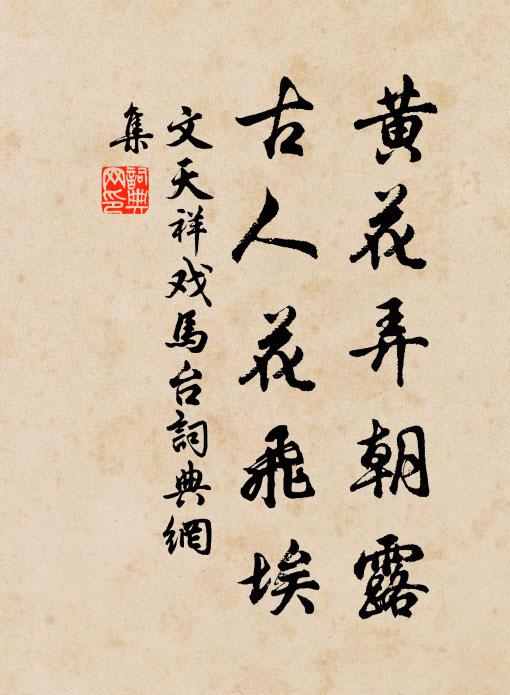 黄花弄朝露
古人花飛埃
文天祥戏馬台詞典網
集
詞典
网印